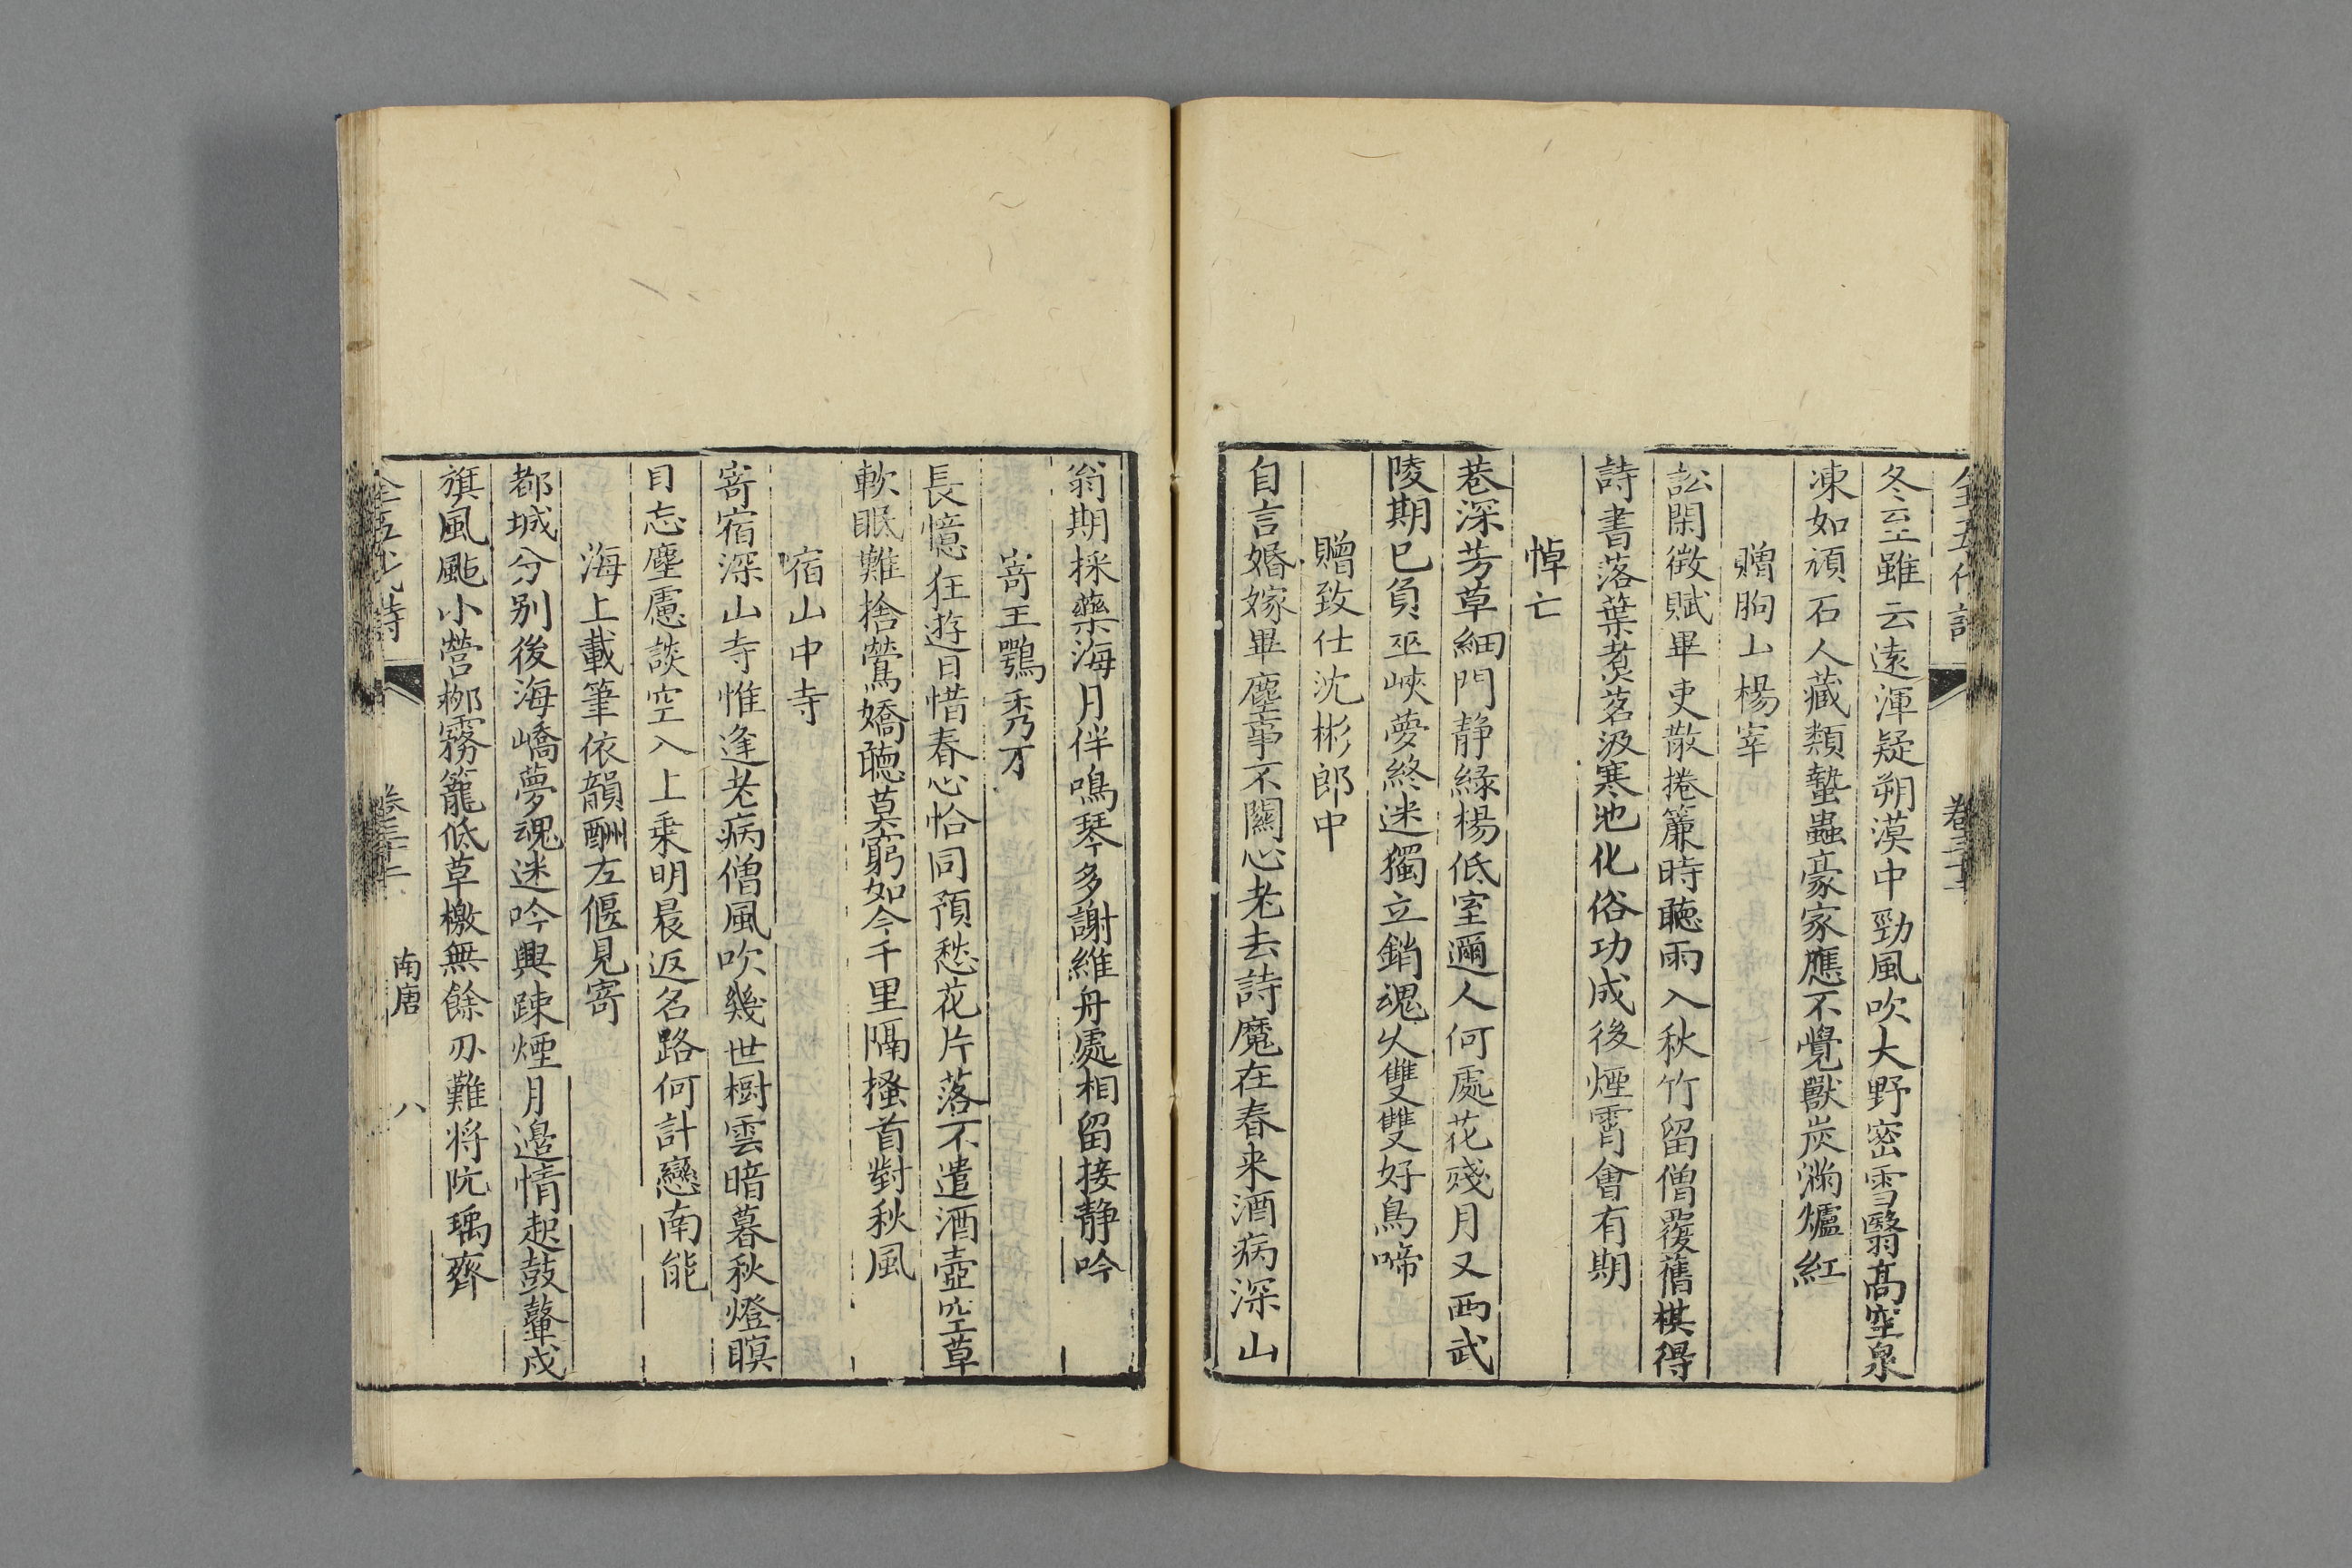 冬至雖云遠渾疑朔漠中勁風吹大野密雪翳高空泉
凍如頑石人藏類蟄蟲豪家應不覺獸炭滿爐紅
贈朐山楊宰
訟閑徵賦畢吏散捲簾時聽雨入秋竹留僧覆舊棋得
詩書落葉煑茗汲寒池化俗功成後煙霄會有期
悼亡
巷深芳草細門静緑楊低室邇人何處花殘月又西武
陵期已負巫峽夢終迷獨立銷魂久雙雙好鳥啼
贈致仕沈彬郎中
自言婚嫁畢塵事不關心老去詩魔在春来酒病深山
翁期採藥海月伴鳴琴多謝維舟處相留接静吟
寄王鶚秀才
長憶狂遊日惜春心恰同預愁花片落不遣酒壺空草
軟眠難捨鶯嬌聽莫窮如今千里隔搔首對秋風
宿山中寺
寄宿深山寺惟逢老病僧風吹幾世樹雲暗暮秋燈瞑
目忘塵慮談空入上乗明晨返名路何計戀南能
海上載筆依韻酬左偃見寄
都城分别後海嶠夢魂迷吟興踈煙月邉情起鼓鼙戍
旗風颭小營栁霧籠低草檄無餘刃難将阮瑀齊
全五代詩
卷三十二
南唐
八